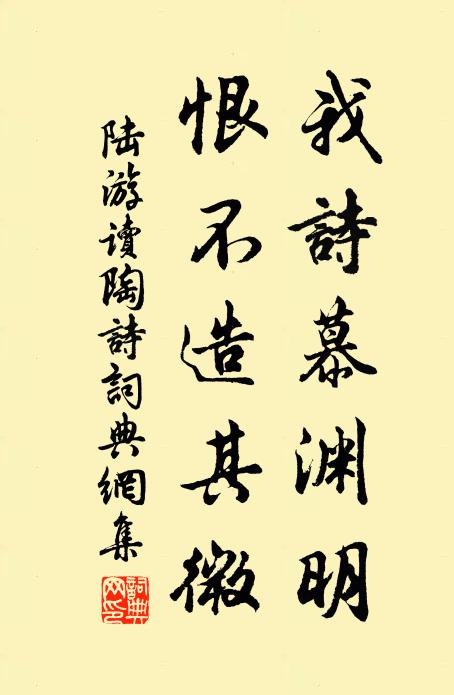 我詩慕渊明
恨不造其微
陆游读陶詩詞典網集
詞典网印